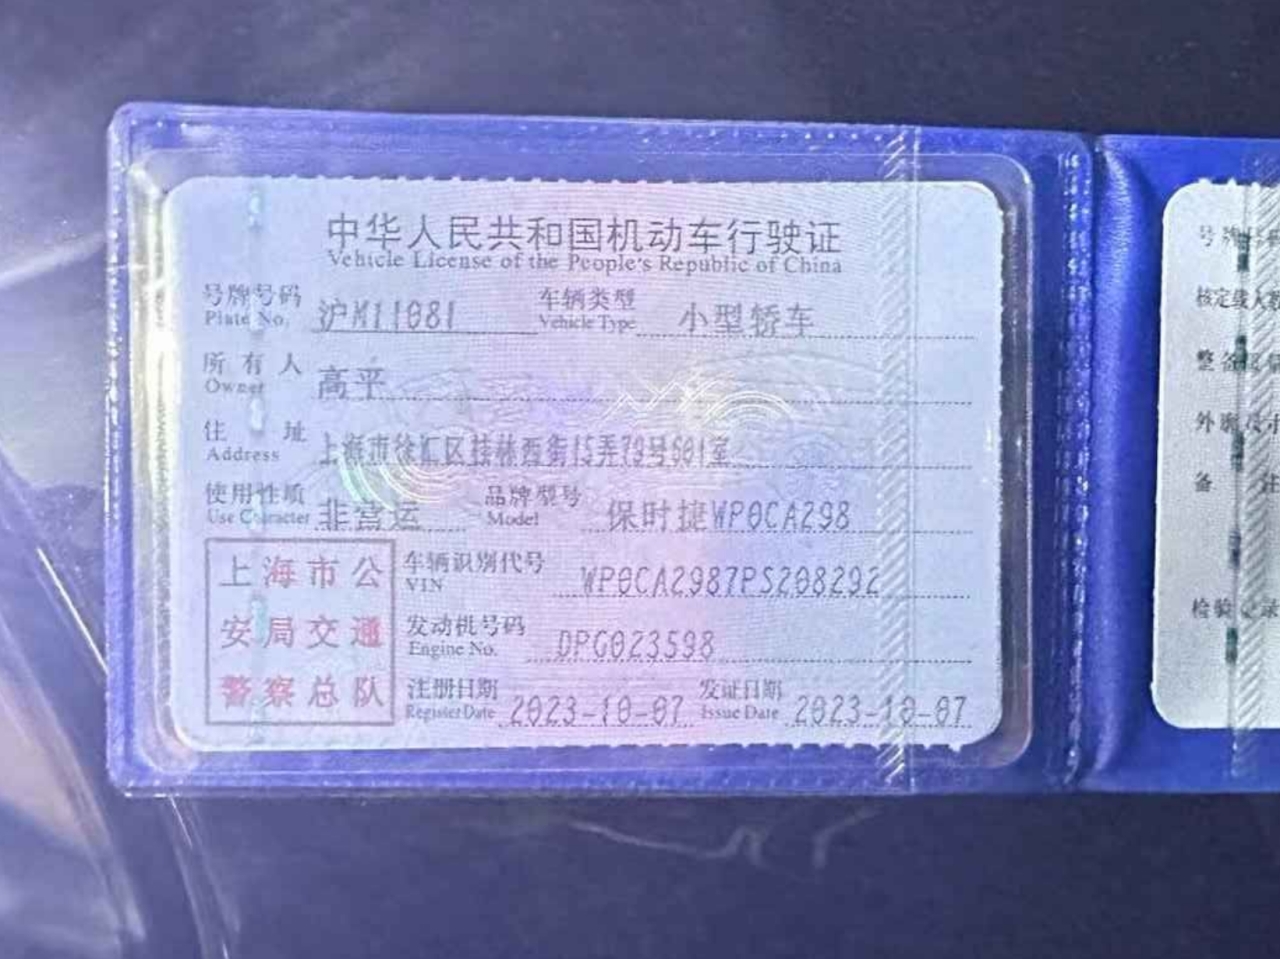 中华人民共和国机动车行驶证
Vehicle License of the People's Republic of China
号牌号码 沪M11081 车辆类型 小型轿车
Plate No. Vehicle Type
所有人 高平
Owner
住址 上海市徐汇区桂林西街15弄79号601室
Address
使用性质 非营运 品牌型号 保时捷WP0CA298
Use Character Model
上海市公
安局交通
警察总队
车辆识别代号 WP0CA2987PS208292
VIN
发动机号码 DPG023598
Engine No.
注册日期 2023-10-07 发证日期 2023-10-07
Register Date Issue Date
号牌
核定载人数
整备质量
外廓尺寸
备 注
检验记录